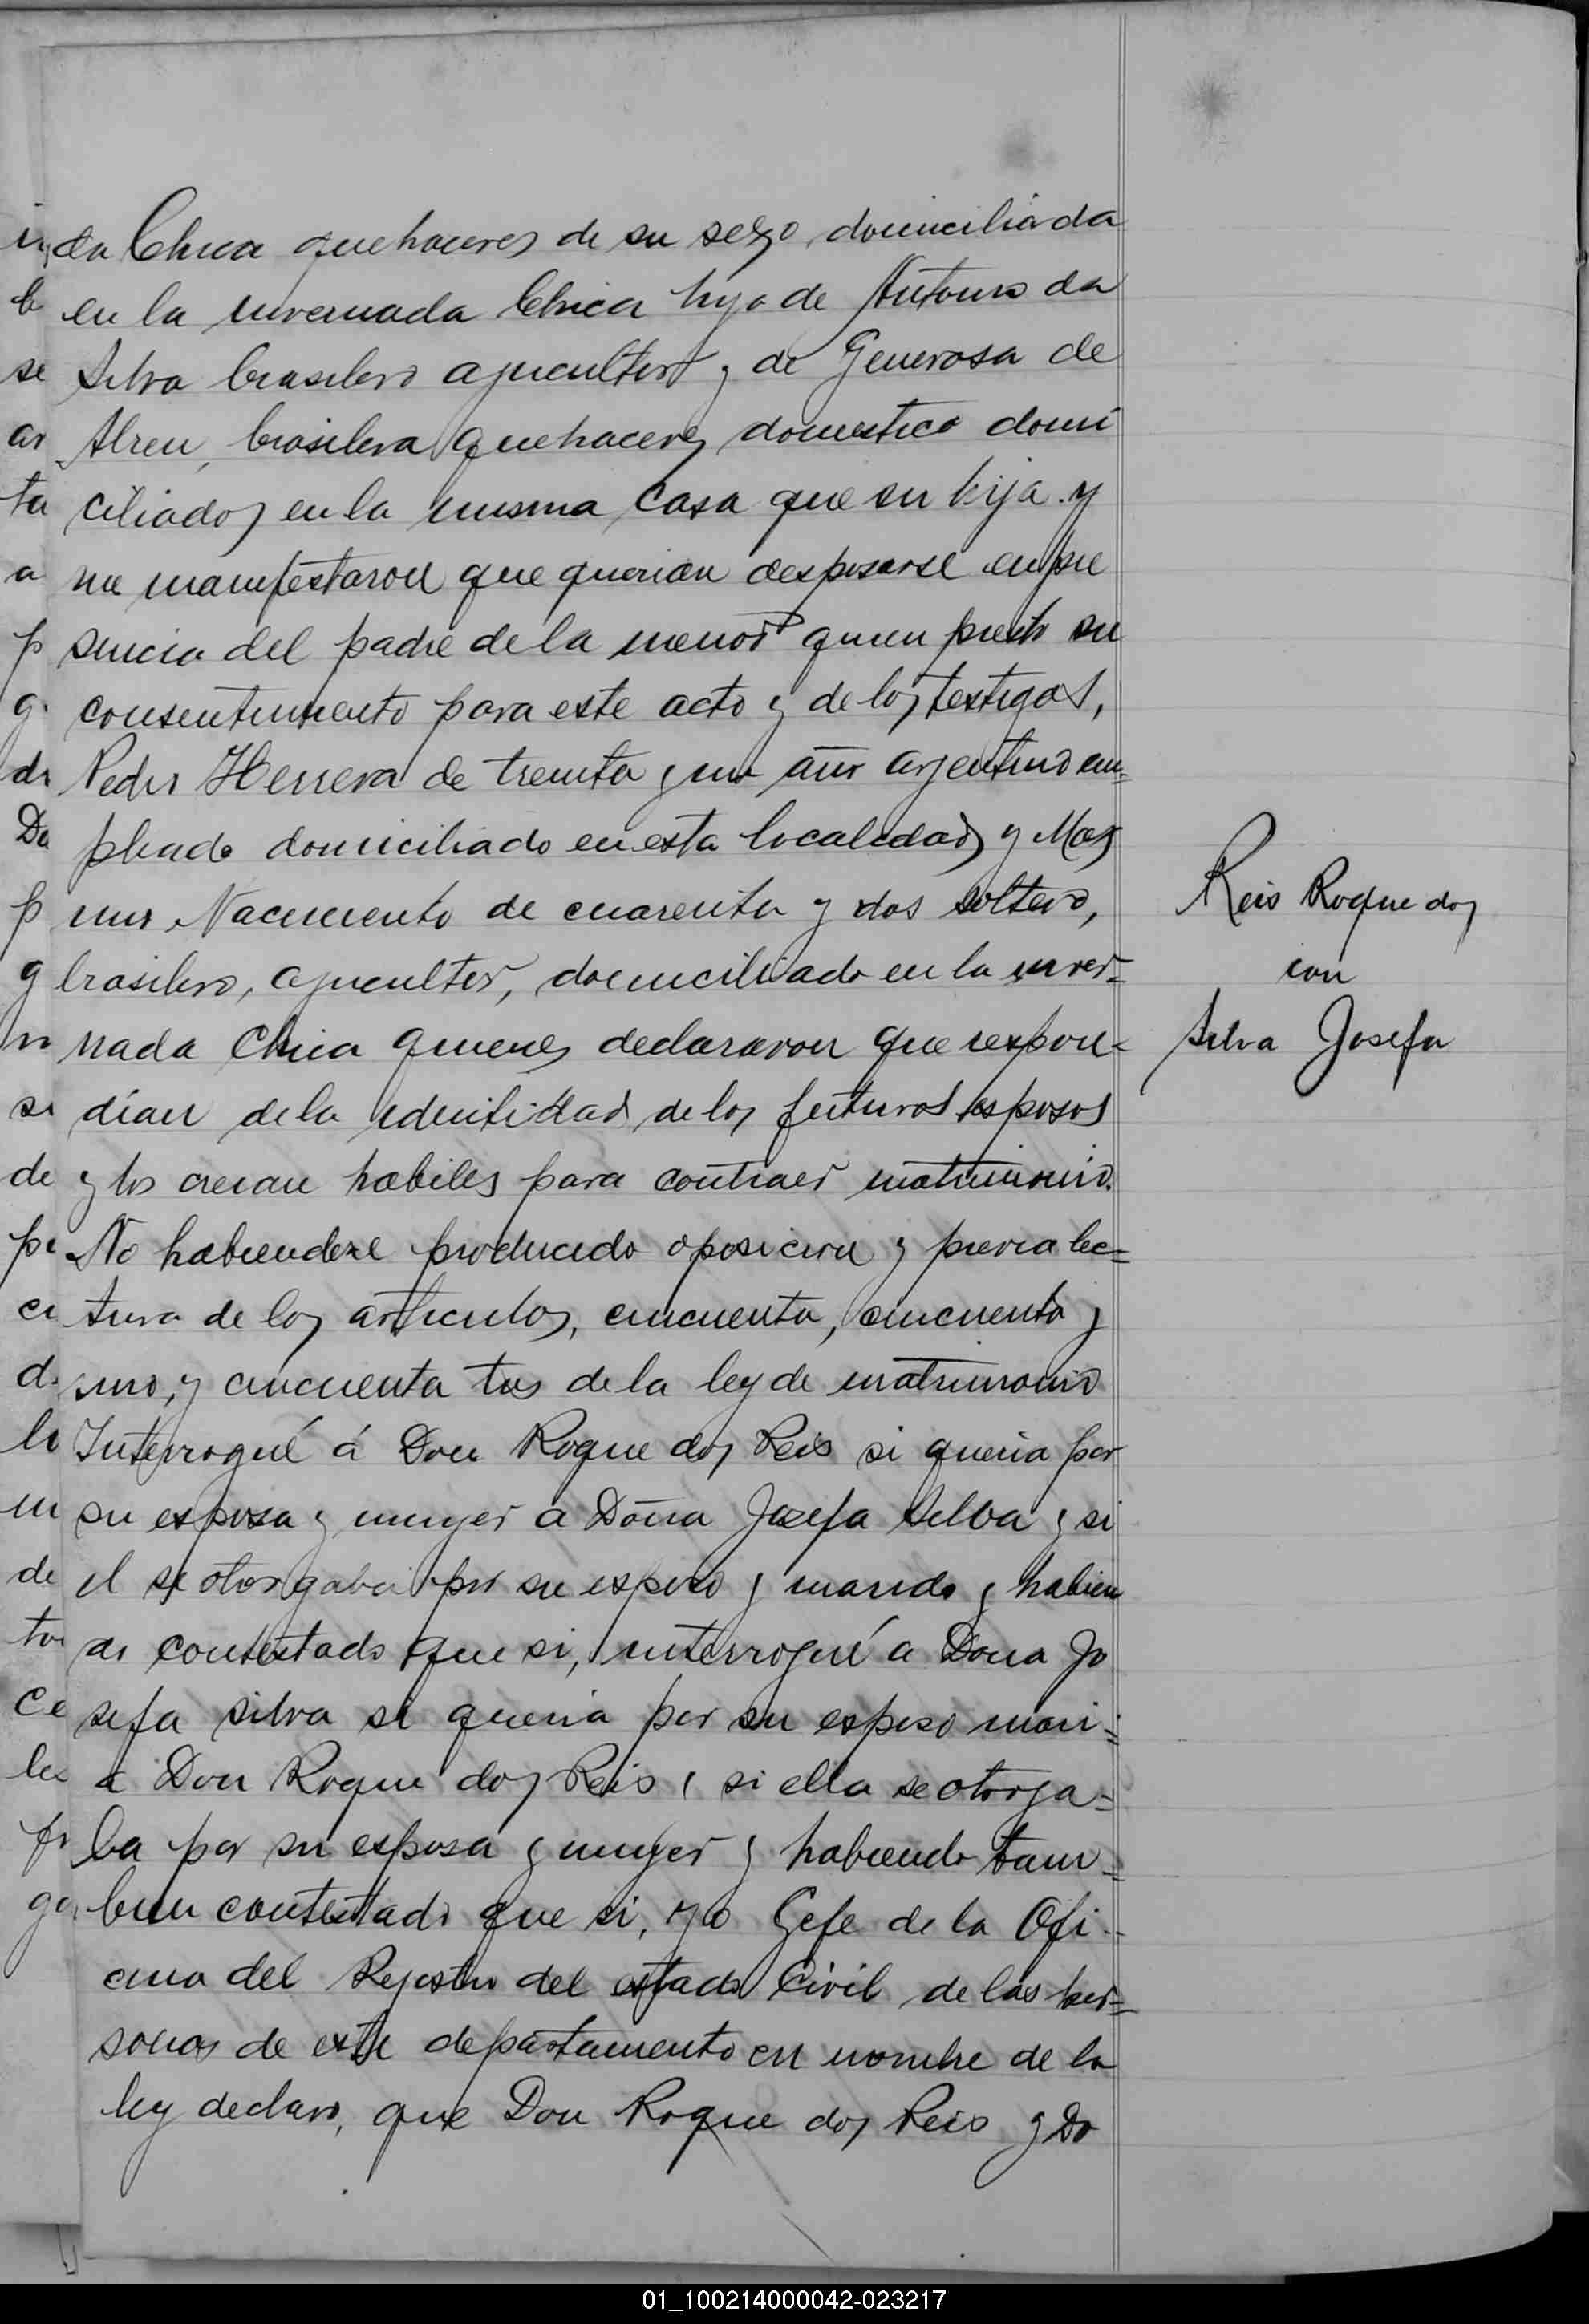 da Chica quehaceres de su sexo, domiciliada
en la invernada Chica hija de Antonio da
Silva brasilero agricultor y de Generosa de
Abreu, brasilera quehaceres domestico domi
ciliados en la misma casa que su hija. y
me manifestaron que querian desposarse en pre
sencia del padre de la menor quien presto su
consentimiento para este acto y de los testigos,
Pedro Herrera de treinta y un año argentino em=
pleado domiciliado en esta localidad y
Nacimiento de cuarenta y dos soltero,
brasilero, agricultor, domiciliado en la inver=
nada Chica quienes declararon que respon=
dían de la identidad de los futuros esposos
y los creian habiles para contraer matrimonio.
No habiendose producido oposicion y previa lec=
tura de los articulos, cincuenta, cincuenta y
uno, y cincuenta tres de la ley de matrimonio
Interrogué á Don Roque dos Reis si queria por
su esposa y mujer a Doña Josefa Silva y si
el se otorgaba por su esposo y marido y habien
do contestado que si, interrogué a Dona Jo
sefa silva si queria por su esposo mari=
a Don Roque dos Reis y si ella se otorga=
ba por su esposa y mujer y habiendo tam=
bien contestado que si, yo Gefe de la Ofi-
cina del Rejistro del estado Civil de las per=
sonas de este departamento en nombre de la
ley declaro, que Don Roque dos Reis y Do
Reis Roque dos
con
Silva Josefa
se
ar
ta
a
p
g
di
Do
p
g
si
de
pe
ci
d
lo
un
de
to
ce
le
fi
ga
01_100214000042-023217